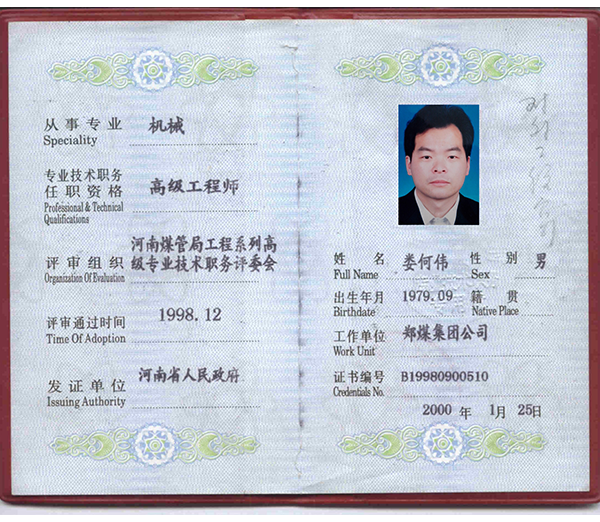 从事专业 机械
Speciality
专业技术职务
任职资格 高级工程师
Professional & Technical
Qualifications
河南煤管局工程系列高
评审组织 级专业技术职务评委会
Organization Of Evaluation
评审通过时间 1998.12
Time Of Adoption
发证单位 河南省人民政府
Issuing Authority
姓名 娄何伟 性别 男
Full Name Sex
出生年月 1979.09 籍贯
Birthdate Native Place
工作单位 郑煤集团公司
Work Unit
证书编号 B19980900510
Credentials No.
2000 年 1月 25日